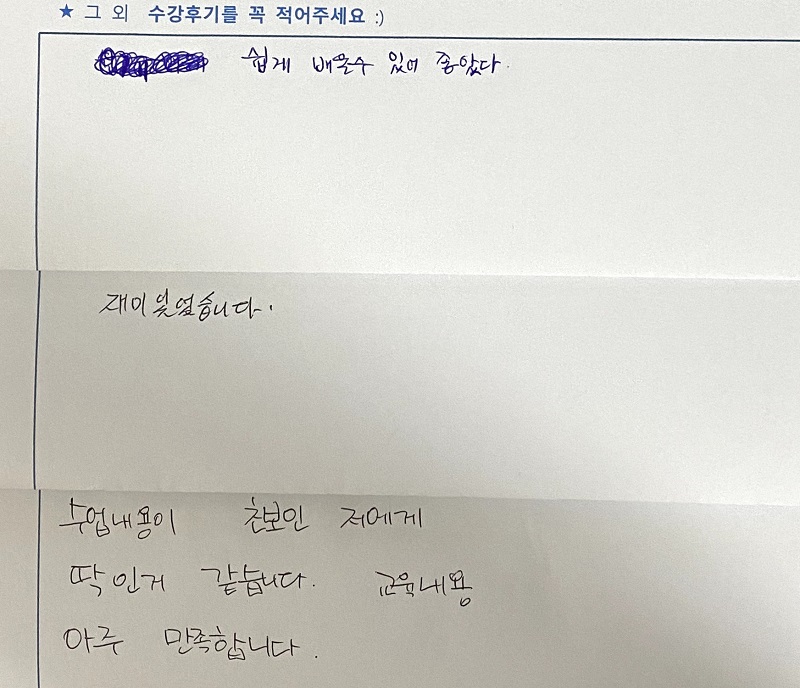 ★ 그 외 수강후기를 꼭 적어주세요 :)
쉽게 배울수 있어 좋았다.
재미있었습니다.
수업내용이 초보인 저에게
딱인거 같습니다. 교육내용
아주 만족합니다.